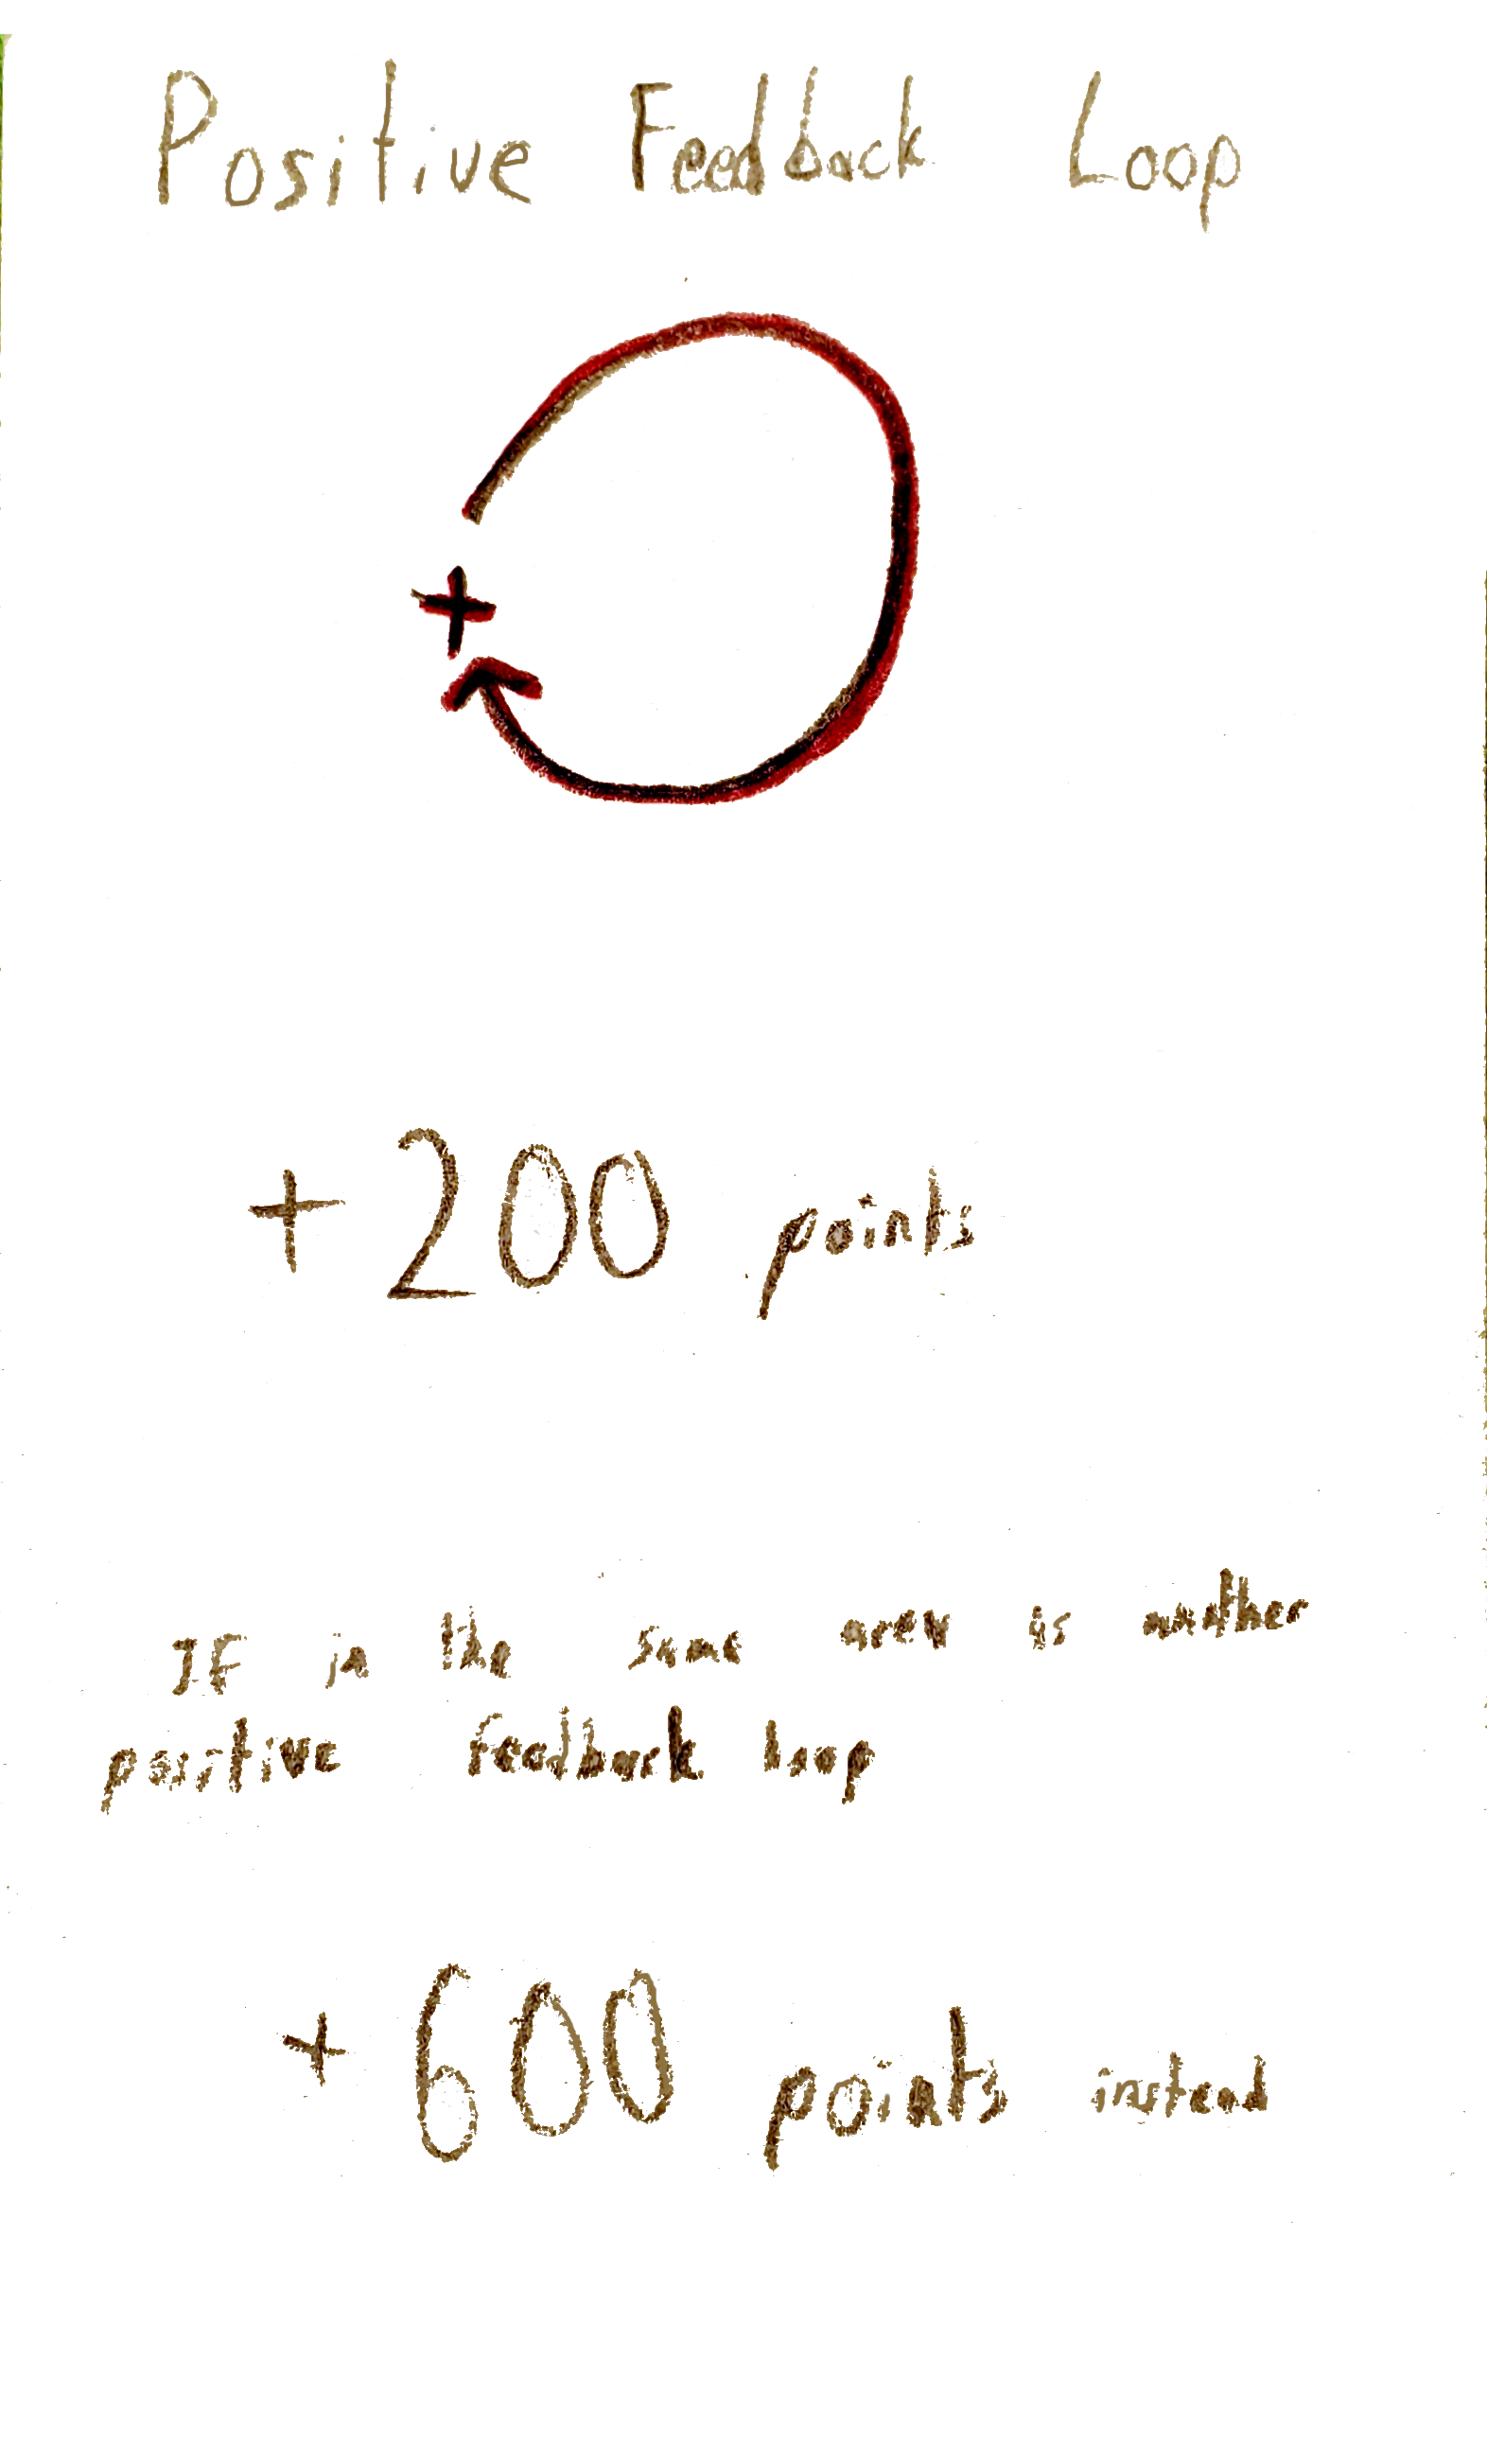 Positive Feedback Loop
+
+200 points
If in the same area is another
positive feedback loop
+600 points instead